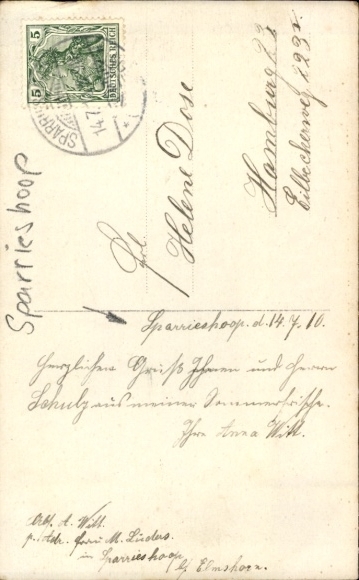 5
5
DEUTSCHES REICH
SPARRIESHOOP
14.7.
Frl.
Helene Dose
Hamburg 23
Eilbeckerweg
Sparrieshoop
Sparrieshoop. d. 14.7.10.
Herzlichen Gruß Ihnen und Herrn
Schulz aus meiner Sommerfrische.
Ihre Anna Witt.
Abs. A. Witt.
p. Adr. Frau M. Lüders.
in Sparrieshoop
b/ Elmshorn.